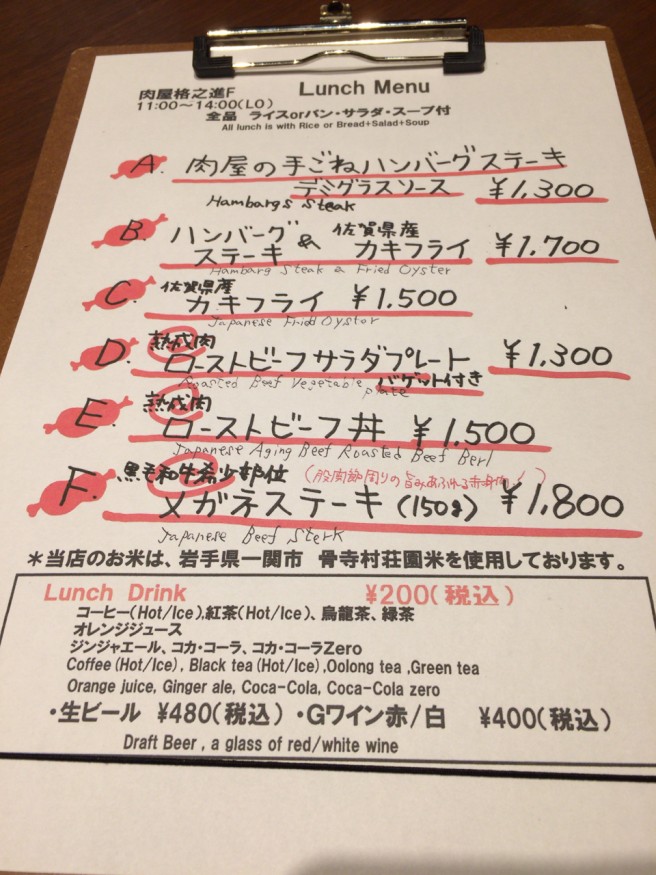 肉屋格之進F
Lunch Menu
11:00~14:00(LO)
全品 ライスorパン・サラダ・スープ付
All lunch is with Rice or Bread+Salad+Soup
A. 肉屋の手ごねハンバーグステーキ
デミグラスソース ¥1,300
Hambargs Steak
B. ハンバーグステーキ & 佐賀県産カキフライ ¥1,700
Hambarg Steak & Fried Oyster
C. 佐賀県産
カキフライ ¥1,500
Japanese Fried Oystor
D. 熟成肉
ローストビーフサラダプレート ¥1,300
Roasted Beef Vegetable plate バゲット付き
E. 熟成肉
ローストビーフ丼 ¥1,500
Japanese Aging Beef Roasted Beef Berl
F. 黒毛和牛希少部位 (股関節周りの旨みあふれる赤身肉!)
メガネステーキ(150g) ¥1,800
Japanese Beef Sterk
*当店のお米は、岩手県一関市 骨寺村荘園米を使用しております。
Lunch Drink ¥200(税込)
コーヒー(Hot/Ice),紅茶(Hot/Ice)、烏龍茶、緑茶
オレンジジュース
ジンジャエール、コカ・コーラ、コカ・コーラZero
Coffee(Hot/Ice), Black tea(Hot/Ice),Oolong tea,Green tea
Orange juice, Ginger ale, Coca-Cola, Coca-Cola zero
・生ビール ¥480(税込)・Gワイン赤/白 ¥400(税込)
Draft Beer, a glass of red/white wine